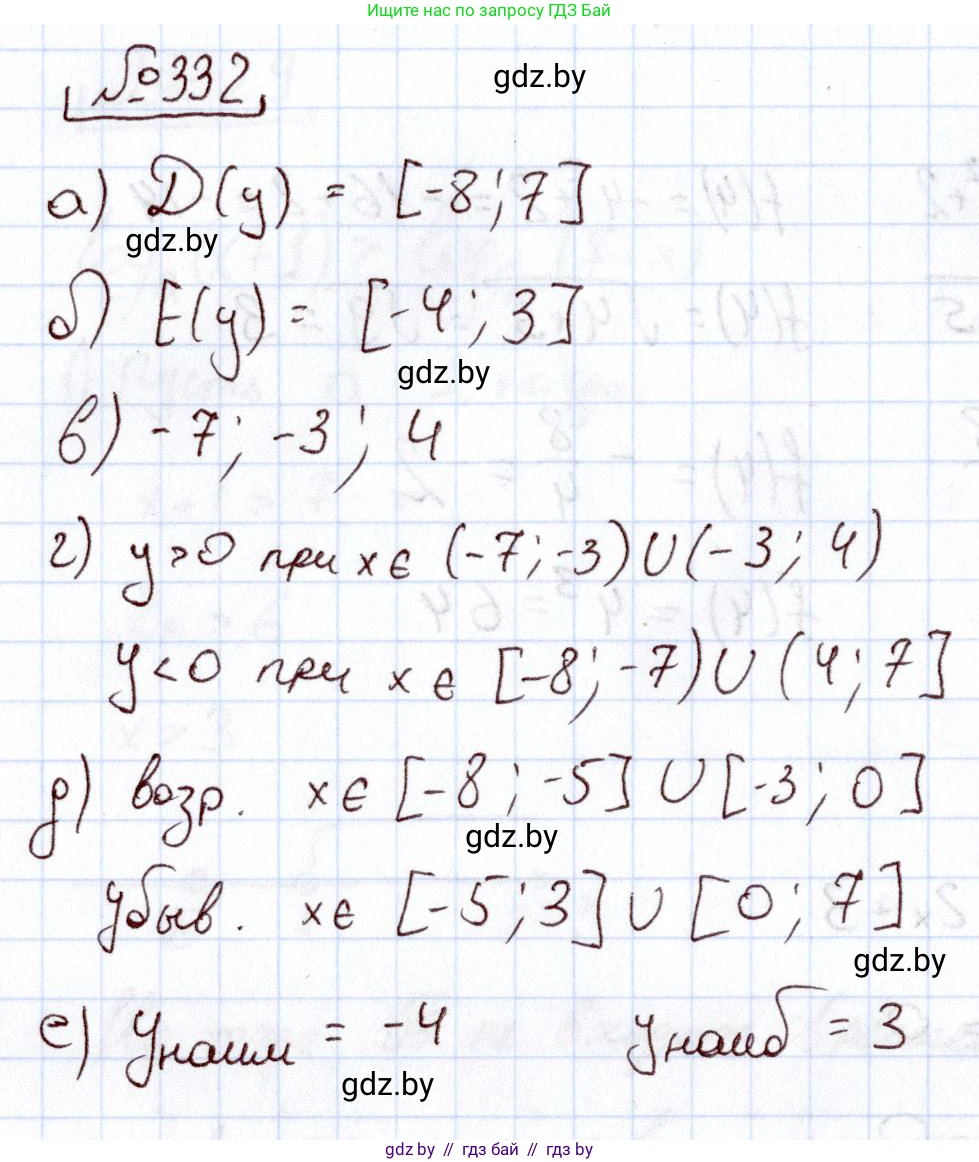 Ищите нас по запросу ГДЗ Бай
№332
gdz.by
а) D(y) = [-8; 7]
gdz.by
б) E(y) = [-4; 3]
gdz.by
в) -7; -3; 4
г) y>0 при x ∈ (-7; -3) ∪ (-3; 4)
y<0 при x ∈ [-8; -7) ∪ (4; 7]
д) возр. x ∈ [-8; -5] ∪ [-3; 0]
gdz.by
убыв. x ∈ [-5; 3] ∪ [0; 7]
gdz.by
е) yнаим = -4 yнаиб = 3
gdz.by
gdz.by // гдз бай // гдз by